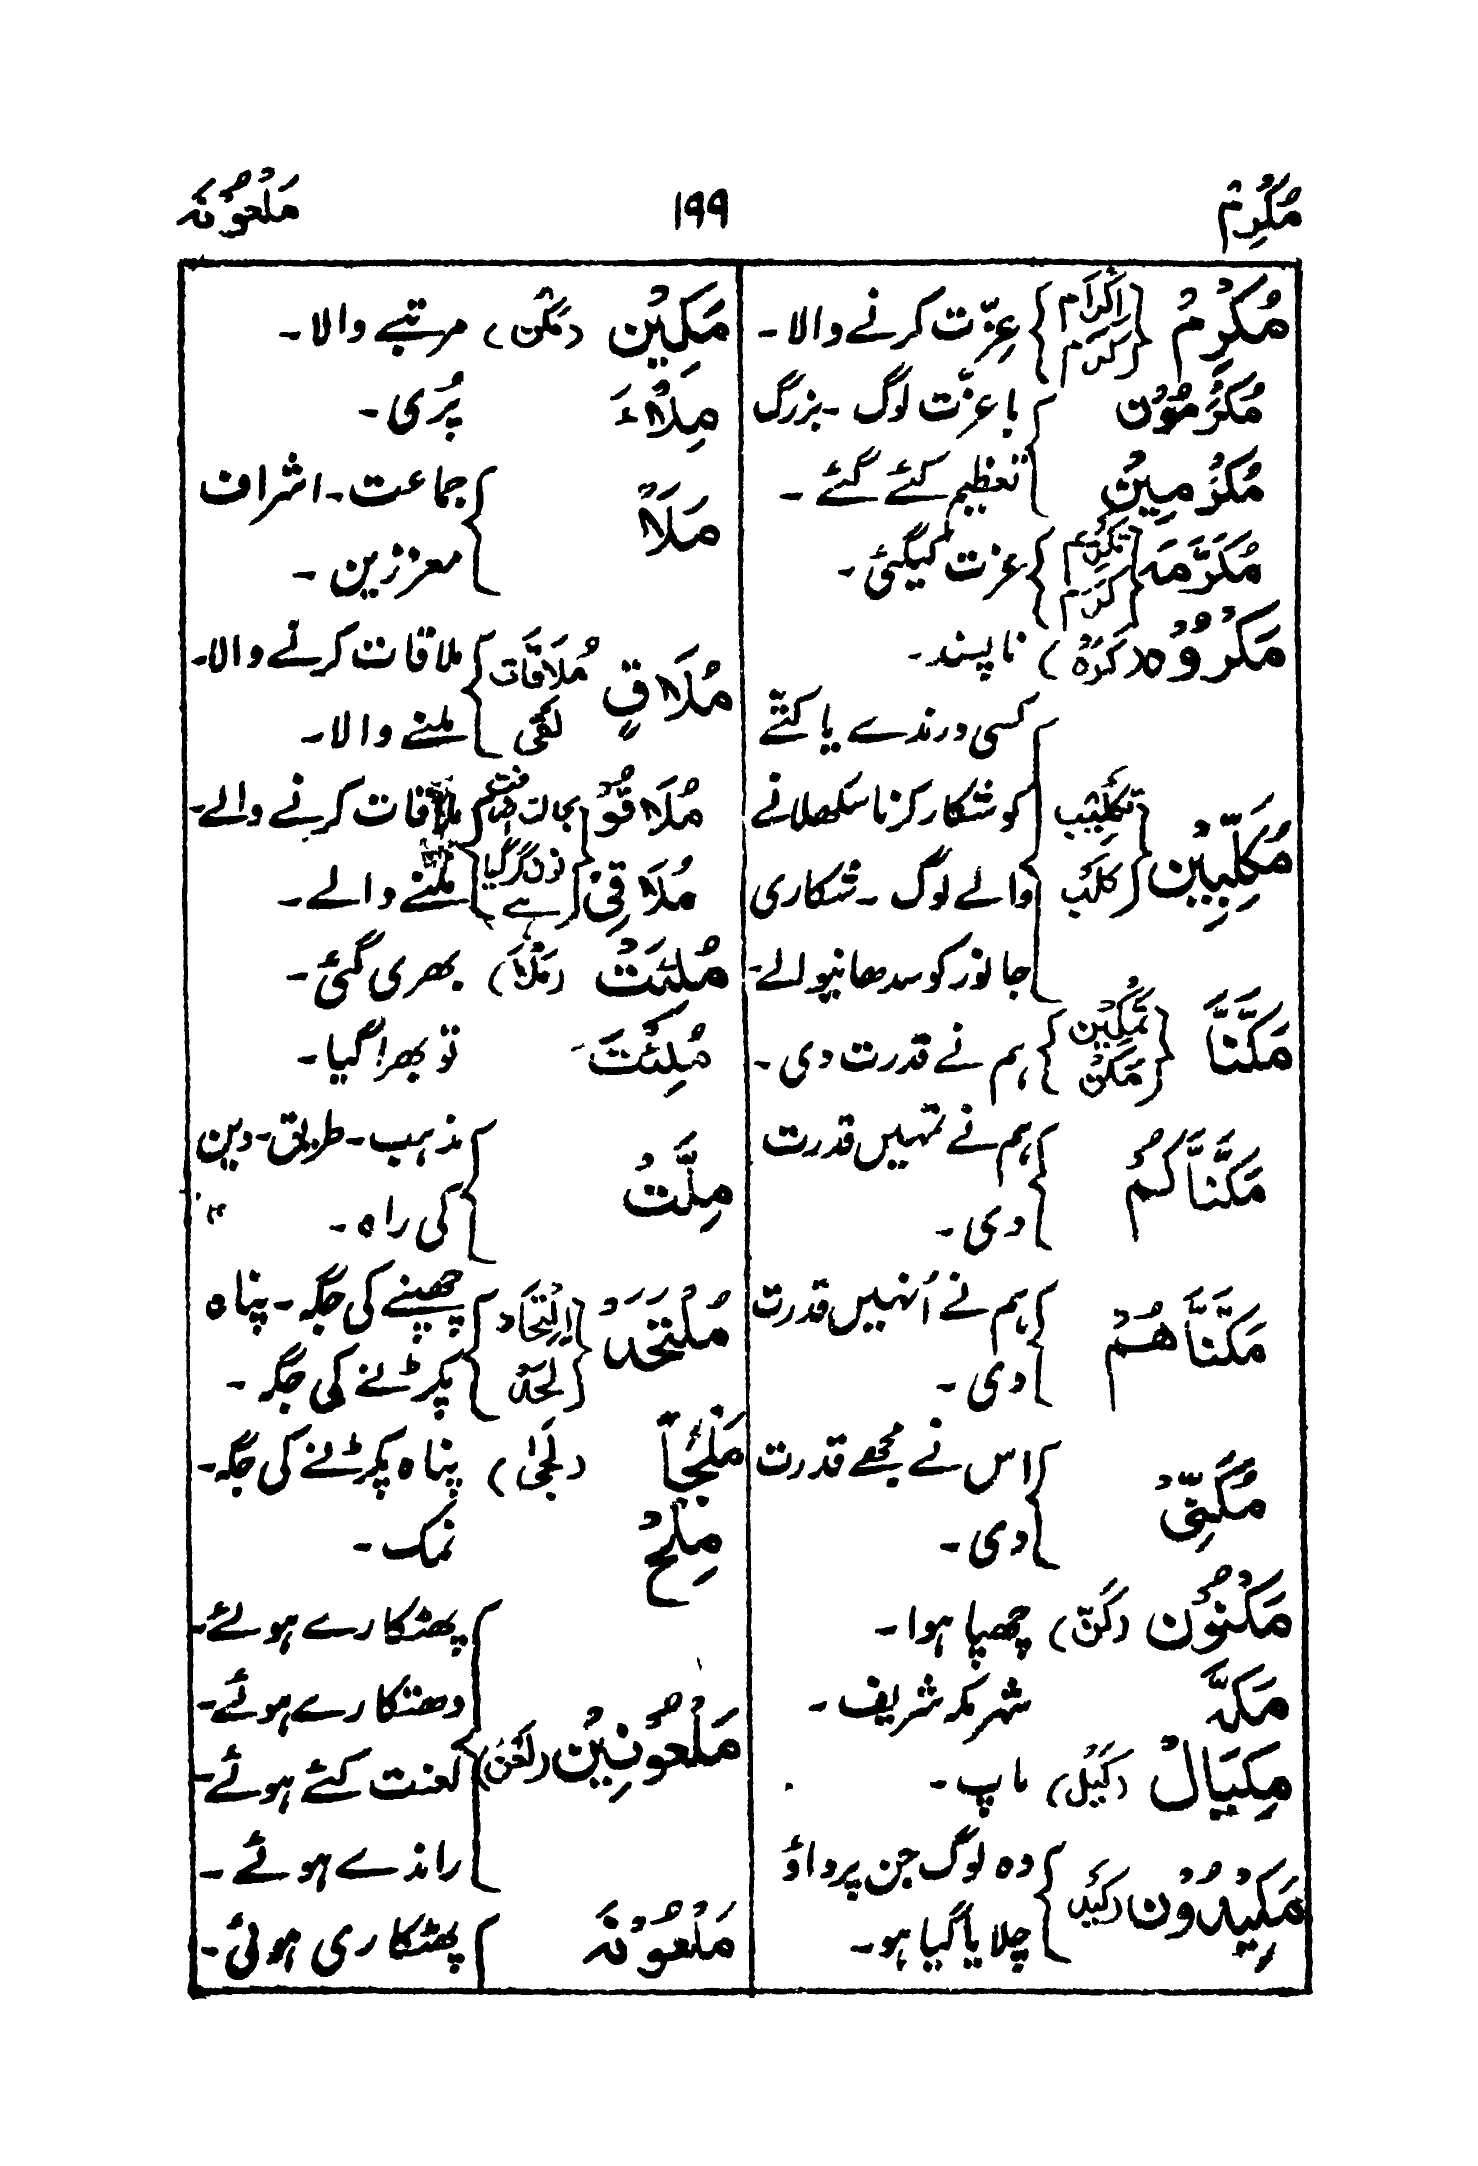 مُكْرِمٌ ۱۹۹ مَلْعُوْنَہ
مُكْرِمُ {اِكْرَام كَرَم} عِزّت کرنے والا۔
مُكْرَمُوْن مُكْرَمِيْنَ {با عزّت لوگ ۔ بزرگ
تعظیم کئے گئے ۔
مُكَرَّمَہ {تَكْرِيْم كَرَم} عزت کیگئی ۔
مَكْرُوْہ (كَرْہٌ) ناپسند ۔
مُكَلِّبِيْن {تَكْلِيْب كَلْب} کسی درندے یا کتّے
کو شکار کرنا سکھلانے
والے لوگ ۔ شکاری
جانور کو سدھانیوالے۔
مَكَّنَّا {تَمْكِيْن مَكْن} ہم نے قدرت دی ۔
مَكَّنَّاكُمْ {ہم نے تمہیں قدرت
دی ۔
مَكَّنَّاهُمْ {ہم نے اُنہیں قدرت
دی ۔
مَكَّنِّیْ {اس نے مجھے قدرت
دی ۔
مَكْنُوْن (كَنّ) چھپا ہوا ۔
مَكَّہ شہر مکہ شریف ۔
مِكْيَالْ (كَيْل) ماپ ۔
مَكِيْدُوْن (كَيْد) {وہ لوگ جن پر داؤ
چلایا گیا ہو۔
مَكِيْن (مَكْن) مرتبے والا ۔
مِلْاءَ پُری ۔
مَلَاً {جماعت ۔ اشراف
معززین ۔
مُلَاقٍ {مُلَاقَات لقی} ملاقات کرنے والا۔
ملنے والا ۔
مُلَاقُوْ مُلَاقِیْ {بحالت نون گر گیا ہے} ملاقات کرنے والے۔
ملنے والے ۔
مُلِئَتْ (مَلْأ) بھری گئی ۔
مُلِئْتَ تو بھرا گیا ۔
مِلَّتُ {مذہب ۔ طریق ۔ دین
کی راہ ۔
مُلْتَحَدْ {اِلْتِحَاد لحد} چھپنے کی جگہ ۔ پناہ
پکڑنے کی جگہ ۔
مَلْجَأً (لَجَیٰ) پناہ پکڑنے کی جگہ۔
مِلْحٌ نمک ۔
مَلْعُوْنِيْنَ (لَعْن) {پھٹکارے ہوئے۔
دھتکارے ہوئے۔
لعنت کئے ہوئے۔
راندے ہوئے ۔
مَلْعُوْنَہ {پھٹکاری ہوئی ۔